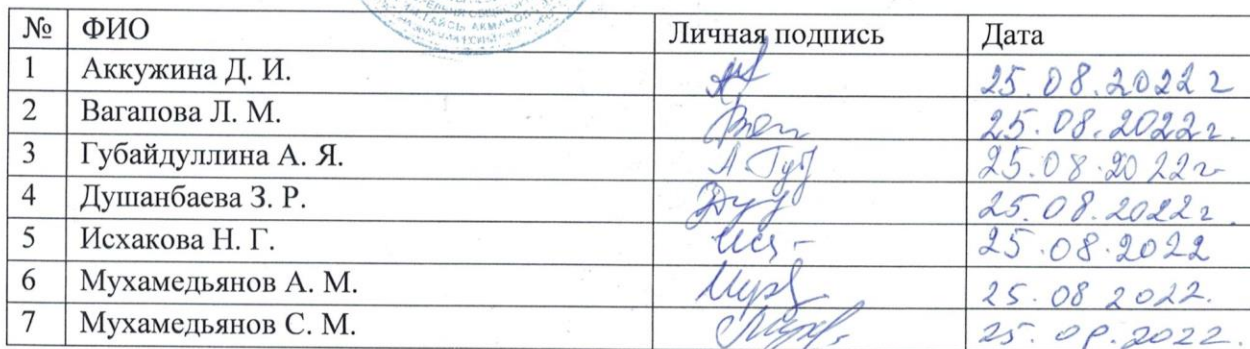 № ФИО Личная подпись Дата
1 Аккужина Д. И. 25.08.2022 г
2 Вагапова Л. М. 25.08.2022г.
3 Губайдуллина А. Я. 25.08.2022г
4 Душанбаева З. Р. 25.08.2022г.
5 Исхакова Н. Г. 25.08.2022
6 Мухамедьянов А. М. 25.08 2022.
7 Мухамедьянов С. М. 25.08.2022.